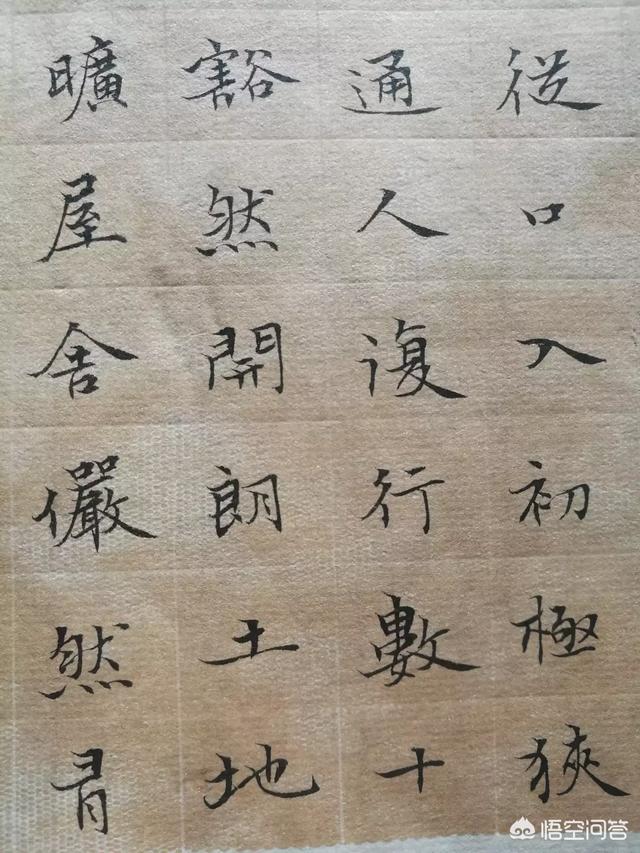 從口入初極狹
通人復行數十
豁然開朗土地
曠屋舍儼然有
悟空问答